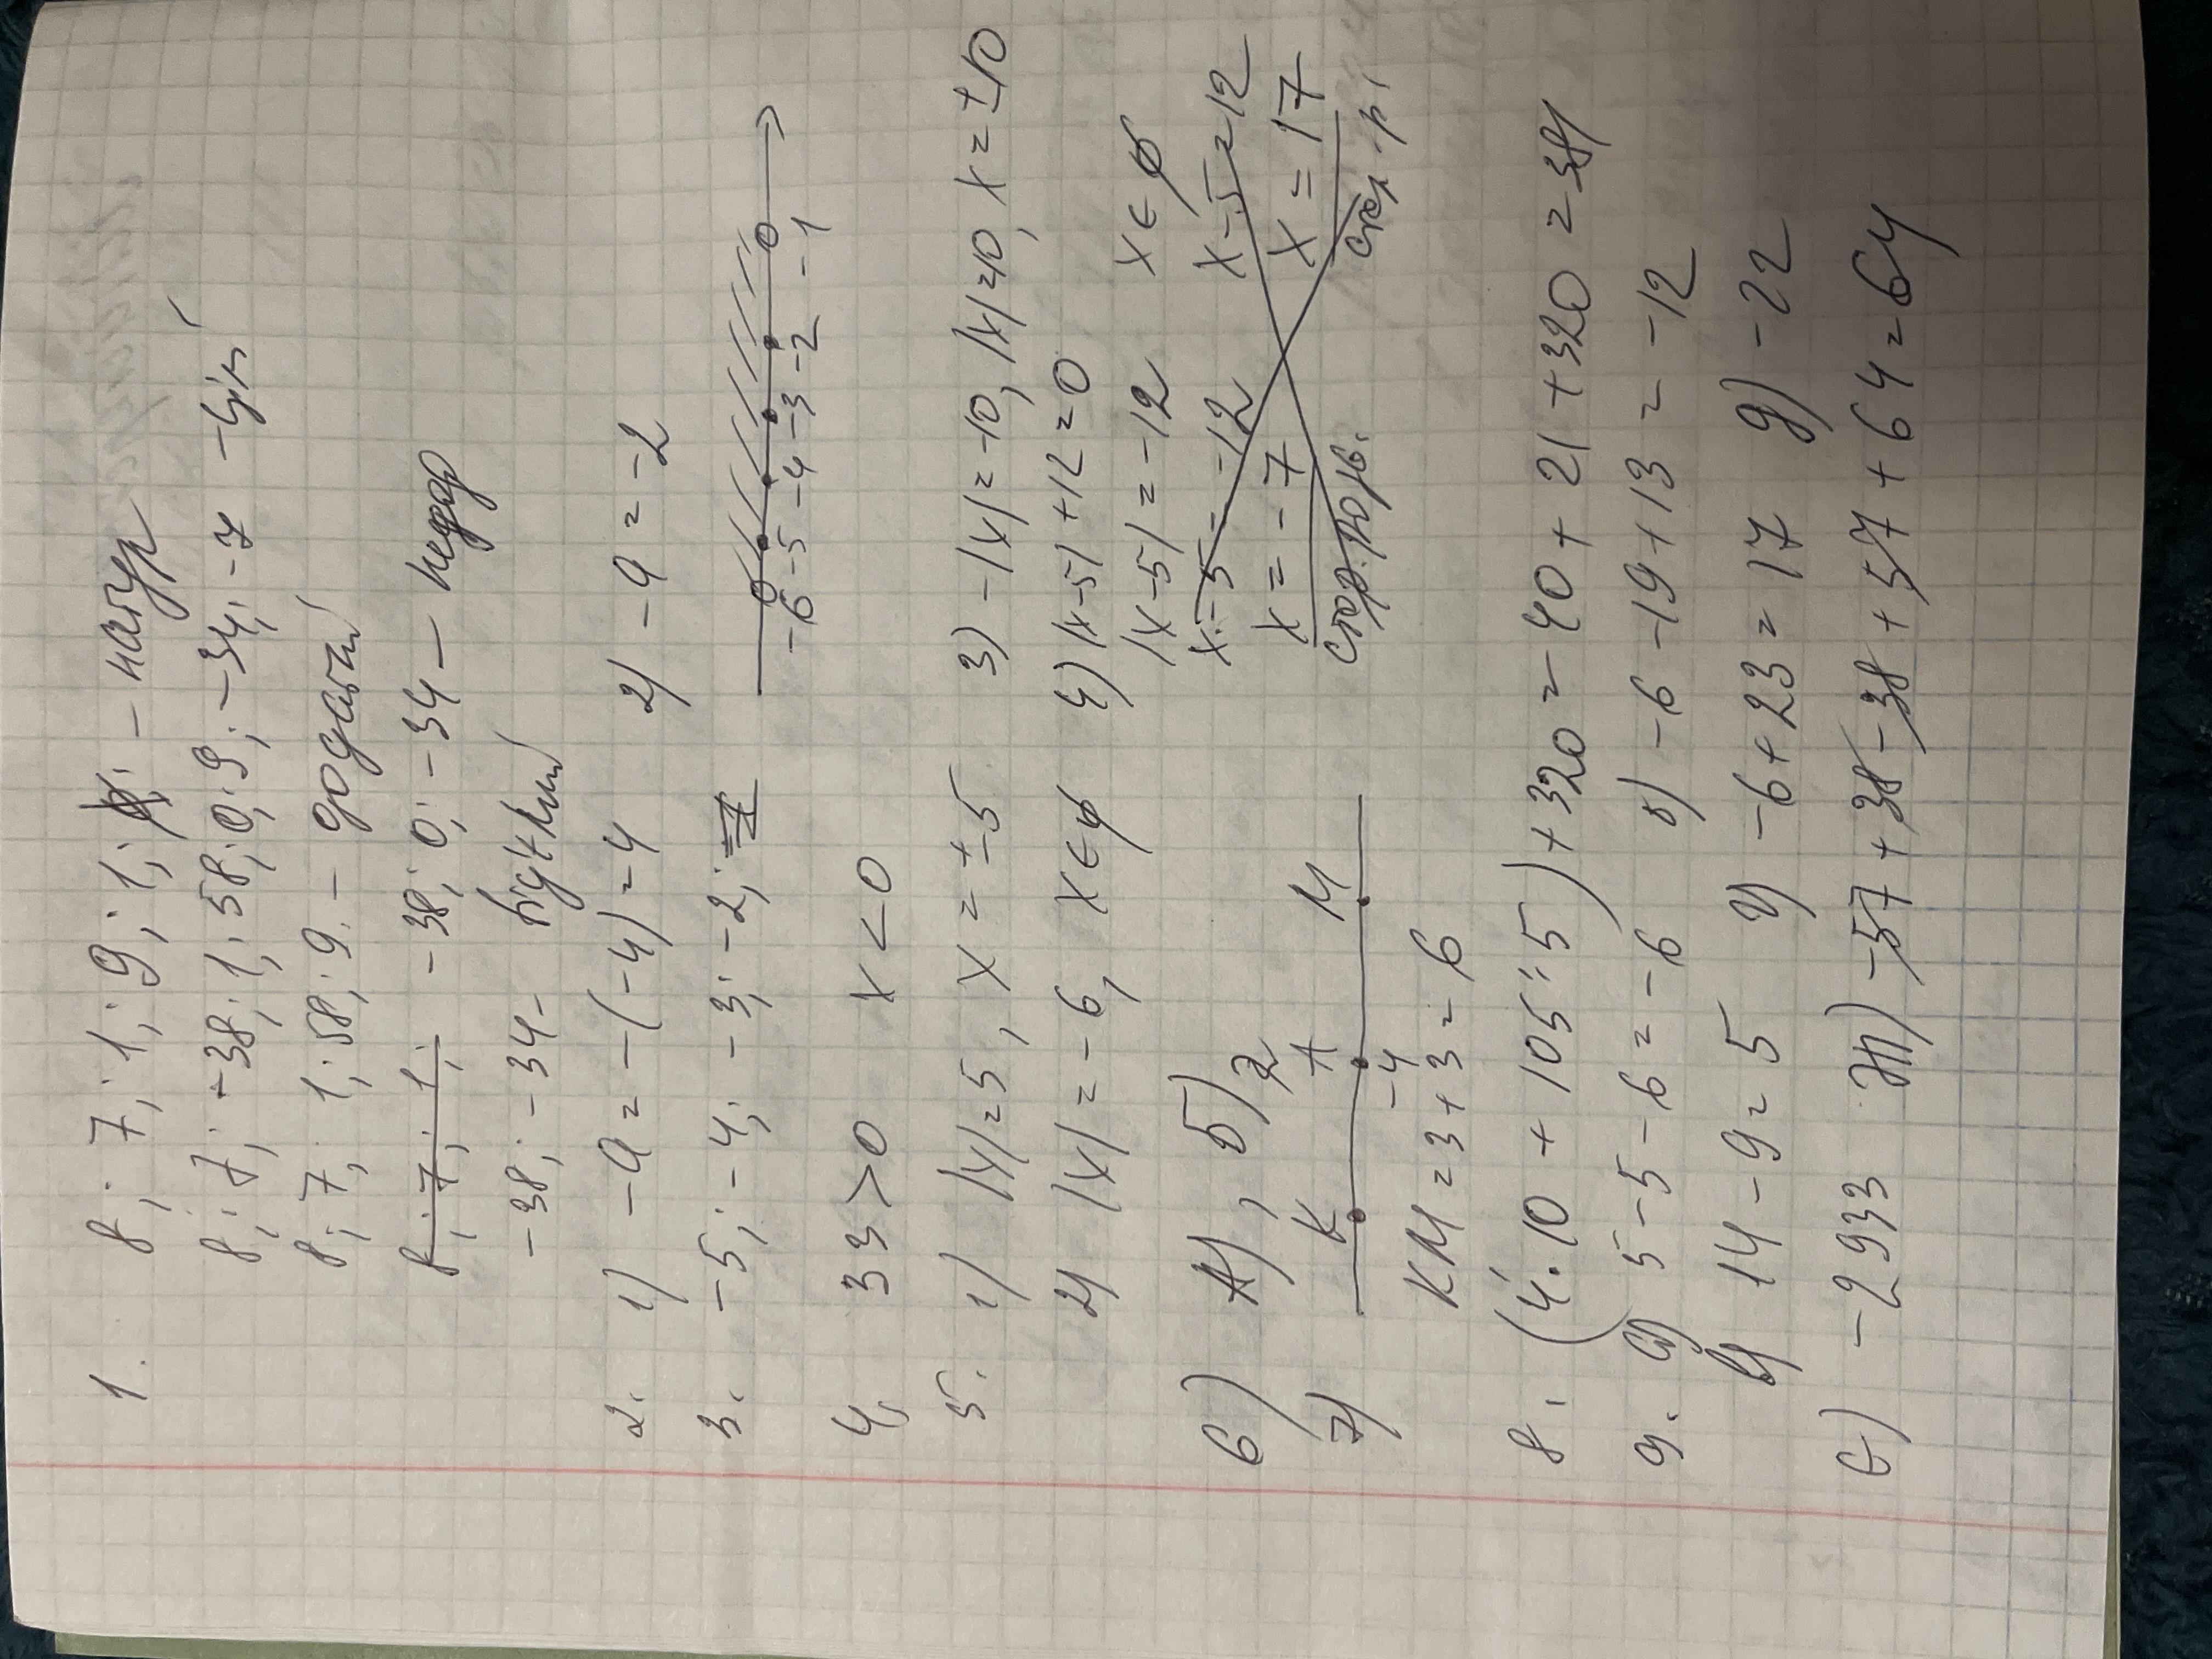 1. 8; 7; 1; 9; 1; - натур
8; 7; -38; 1; 58; 0; 9; -34; -7 - цілі
8; 7; 1; 58; 9. - додатні
8; 7; 1; -38; 0; -34 - недод
-38; -34 - від'ємні
2. 1) -a = -(-4) = 4 2) -a = -2
3. -5; -4; -3; -2;
-6 -5 -4 -3 -2 -1
4. 33 > 0 x < 0
5. 1) |x| = 5, x = ±5 3) -|x| = -10, |x| = 10, x = ±10
2) |x| = -6, x ∈ ∅ 4) |x-5| + 12 = 0
|x-5| = -12 x ∈ ∅
x - 5 = -12 x - 5 = 12
x = -7 x = 17
6) А), Б) 2
7) K A M
-4
KM = 3 + 3 = 6
8. (4·10 + 105:5) + 320 = 40 + 21 + 320 = 381
9. а) 5 - 5 - 6 = -6 б) -6 - 19 + 13 = -12
в) 14 - 9 = 5 г) -6 + 23 = 17 д) -22
е) -2933 ж) -57 + 38 - 38 + 57 + 64 = 64